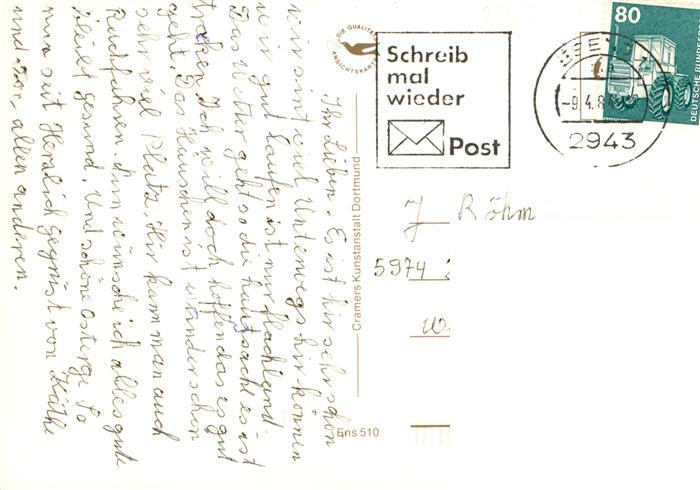 Ihr Lieben. Es ist hir sehr schön
wir sind viel Unterwegs hir können
wir gut laufen ist nur flachland.
Das Wetter geht so die hautsache es ist
troken. Ich will doch hoffen das es gut
geht. Das Häuschen ist wunderschön
sehr viel Platz. Hir kann man auch
Radfahren. Nun wünsche ich alles gute
bleibt gesund. Und schöne Osterge So
nun seit Herzlich gegrüst von Käthe
und von allen anderen.
DIE QUALITÄTS
ANSICHTSKARTE
Cramers Kunstanstalt Dortmund
Ens 510
Schreib
mal
wieder
Post
-9.4.8
2943
80
DEUTSCHE BUNDESPOST
J Röhm
5974
W.